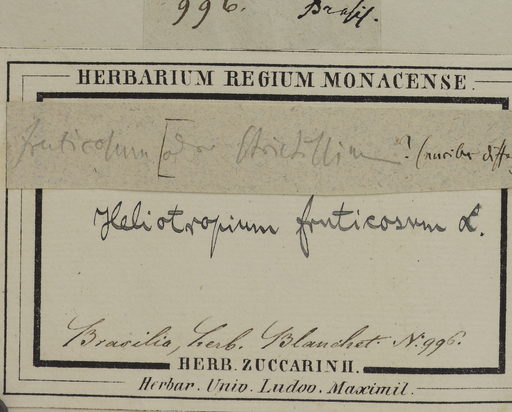 996. Brasil.
HERBARIUM REGIUM MONACENSE.
fruticosum [ strictissimum ?
Heliotropium fruticosum L.
Brasilia, herb. Blanchet N. 996.
HERB. ZUCCARINII.
Herbar. Univ. Ludov. Maximil.